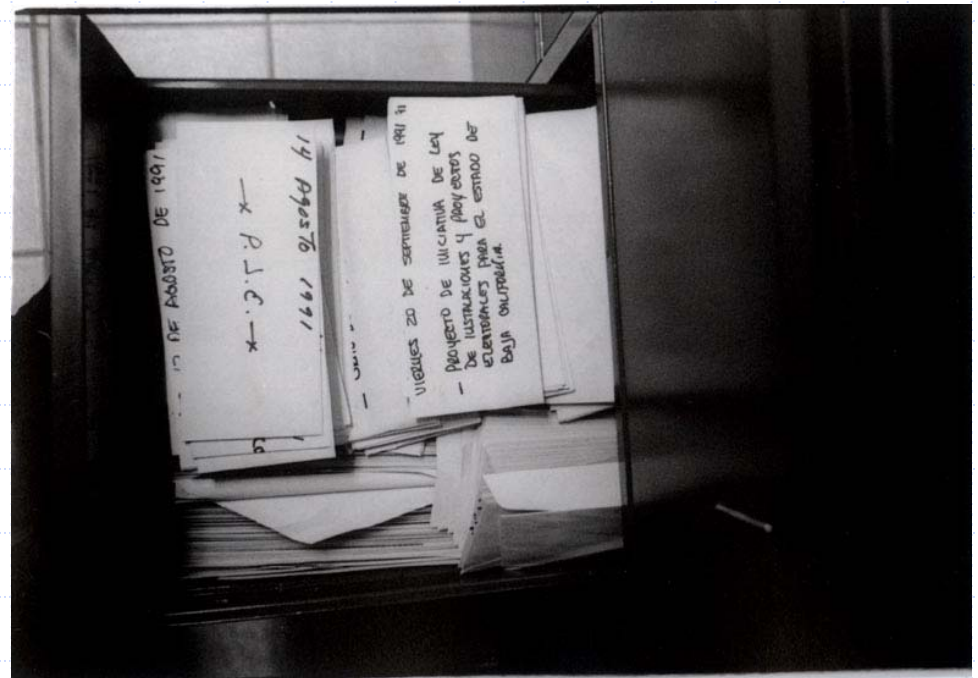 DE AGOSTO DE 1991
14 AGOSTO 1991
* P.J.C. *
VIERNES 20 DE SEPTIEMBRE DE 1991
- PROYECTO DE INICIATIVA DE LEY
DE INSTALACIONES Y PROYECTOS
ELECTORALES PARA EL ESTADO DE
BAJA CALIFORNIA.